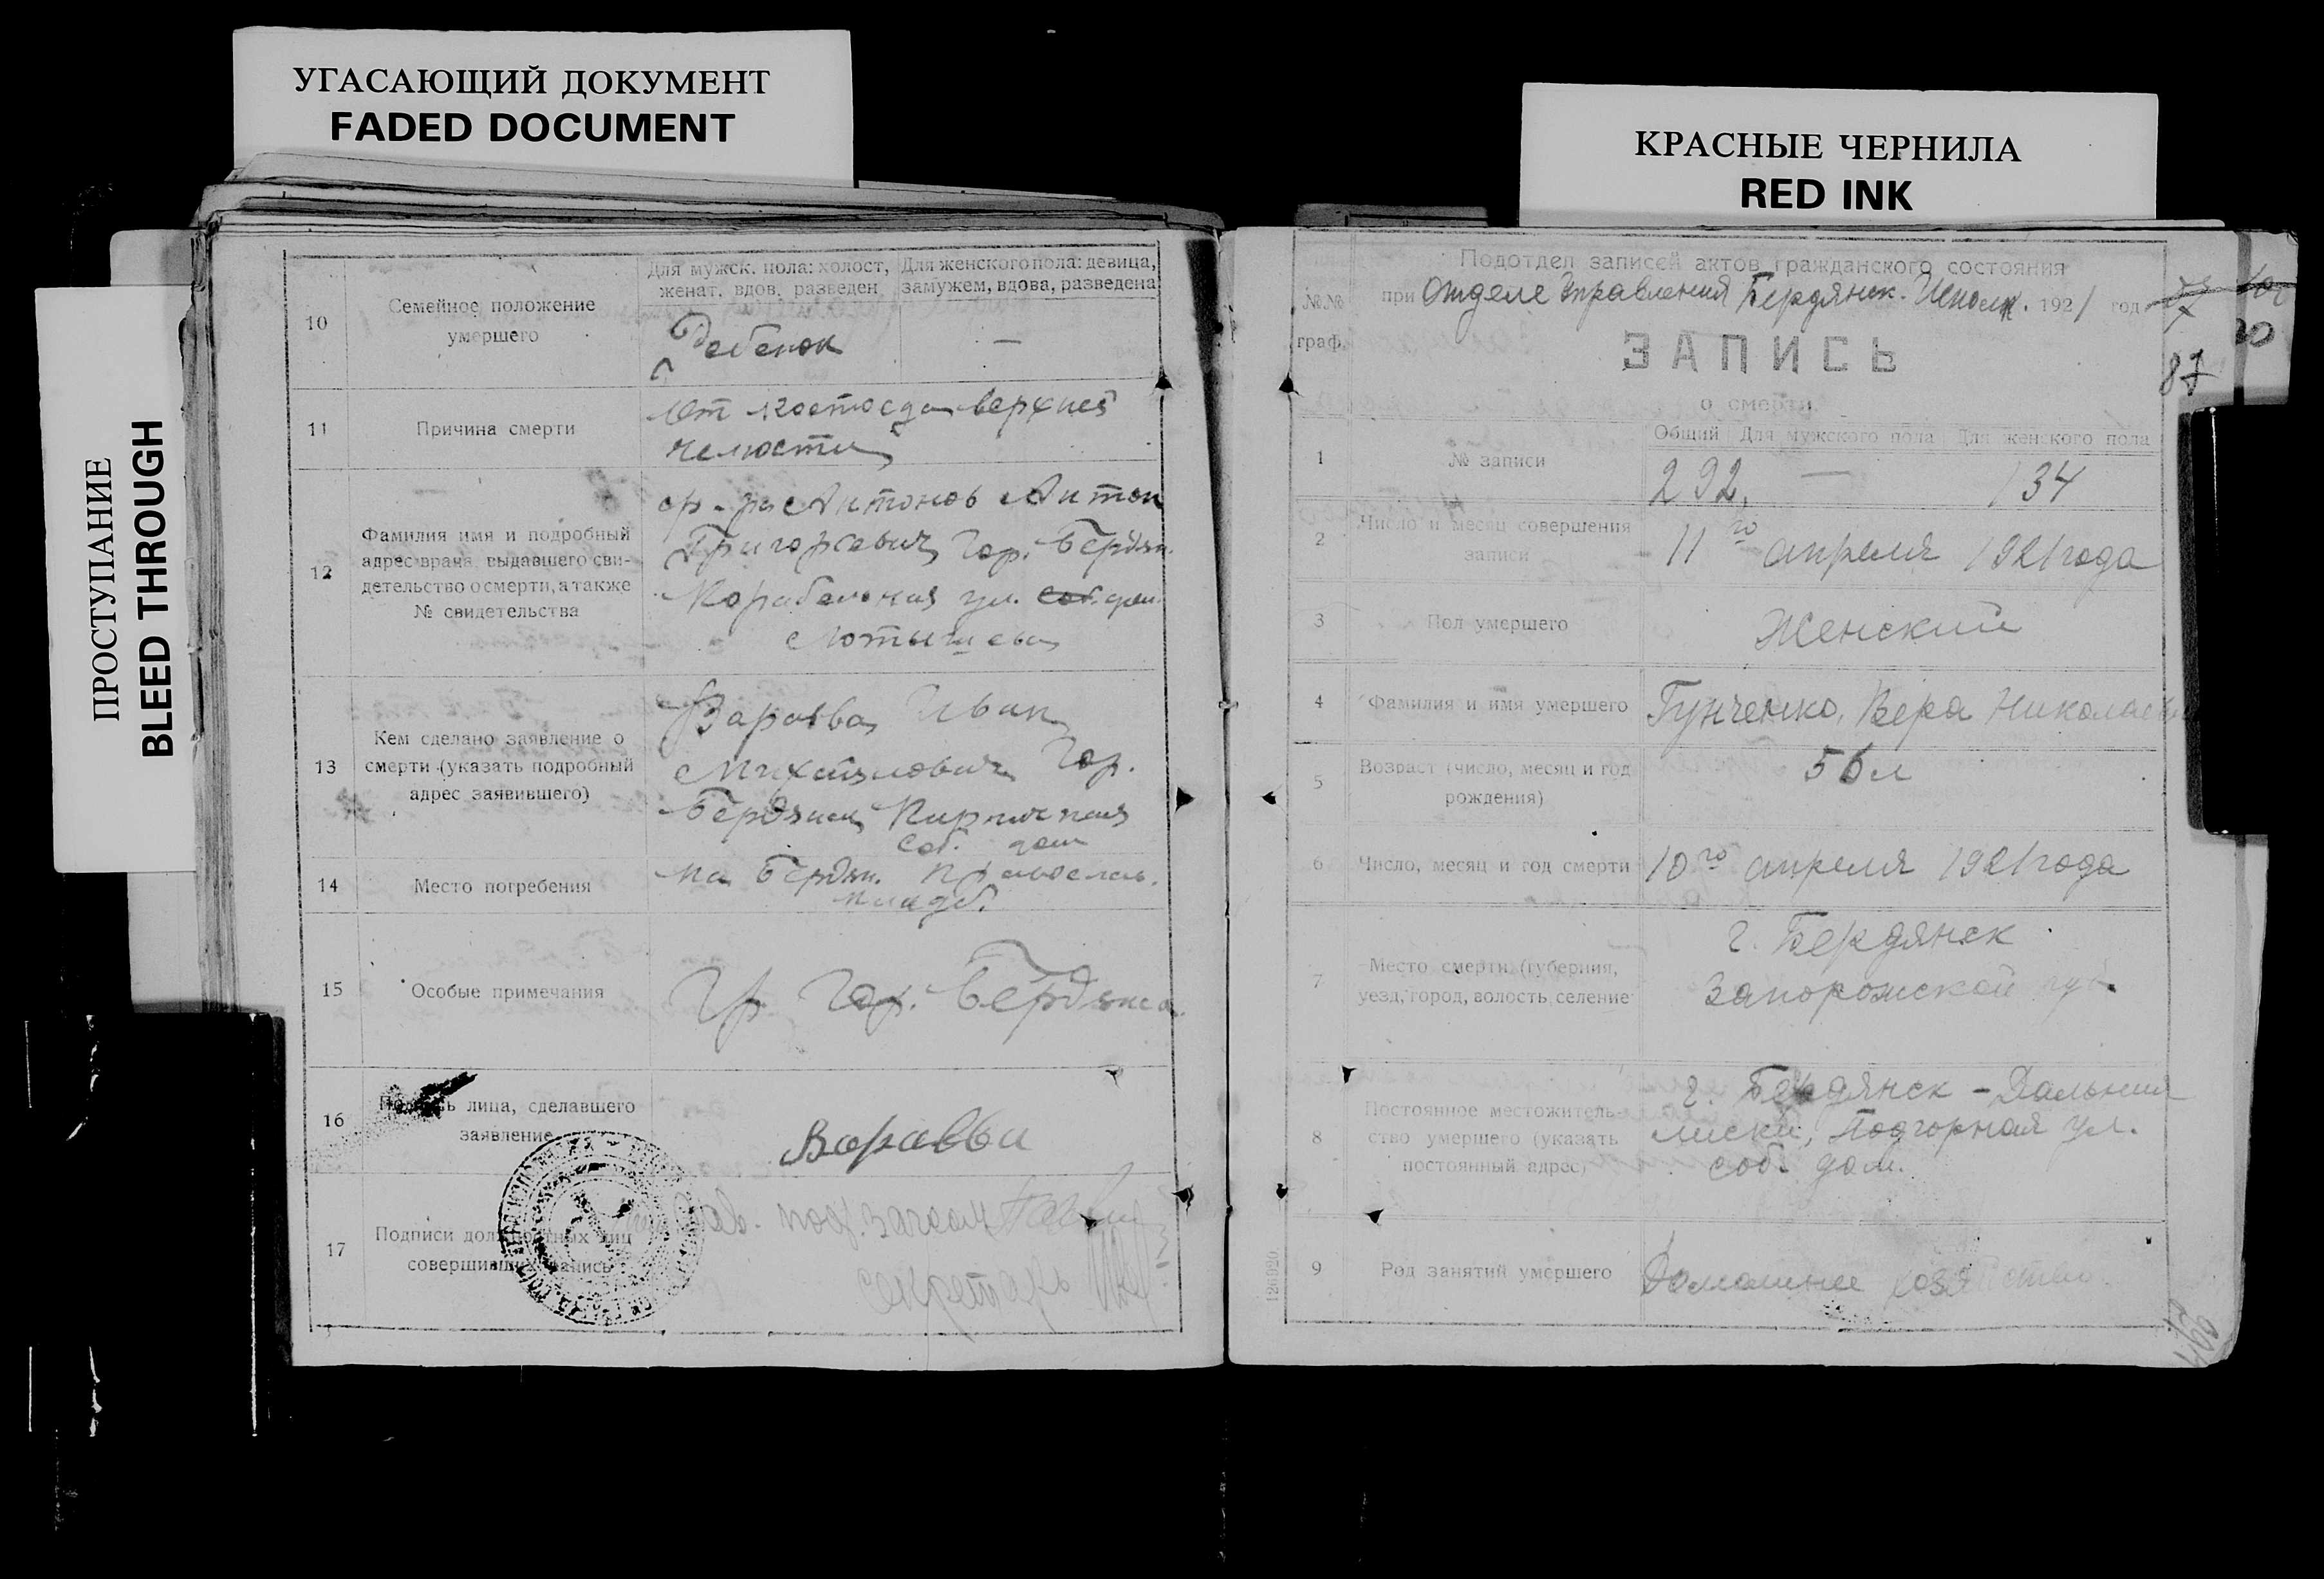 УГАСАЮЩИЙ ДОКУМЕНТ
FADED DOCUMENT
КРАСНЫЕ ЧЕРНИЛА
RED INK
ПРОСТУПАНИЕ
BLEED THROUGH
10
Семейное положение
умершего
Для мужск. пола: холост,
женат, вдов, разведен
Для женского пола: девица,
замужем, вдова, разведена
Ребенок
—
11
Причина смерти
От костоеда верхней
челюсти
12
Фамилия имя и подробный
адрес врача, выдавшего сви-
детельство о смерти, а также
№ свидетельства
Антонов Антон
Григорьевич Гор. Бердян.
Корабельная ул.
13
Кем сделано заявление о
смерти (указать подробный
адрес заявившего)
Варавва Иван
Михайлович Гор.
Бердянск
Соб. дом
14
Место погребения
На Бердян. Православ.
кладб.
15
Особые примечания
Гр. Гор. Бердянска
16
Подпись лица, сделавшего
заявление
Варавва
17
Подписи должностных лиц
совершивших запись
Зав. под. загсом
секретарь
Подотдел записей актов гражданского состояния
№№
граф.
при Отделе Управления Бердянск. Исполк. 1921 год
87
ЗАПИСЬ
о смерти
Общий Для мужского пола Для женского пола
1
№ записи
292. — 134
2
Число и месяц совершения
записи
11го апреля 1921 года
3
Пол умершего
Женский
4
Фамилия и имя умершего
Гунченко, Вера Николаевна
5
Возраст (число, месяц и год
рождения)
56 л
6
Число, месяц и год смерти
10го апреля 1921 года
7
Место смерти (губерния,
уезд, город, волость, селение
г. Бердянск
Запорожской губ.
8
Постоянное местожитель-
ство умершего (указать
постоянный адрес)
г. Бердянск - Дальния
лиски, Подгорная ул.
соб. дом.
9
Род занятий умершего
Домашнее хозяйство
126020